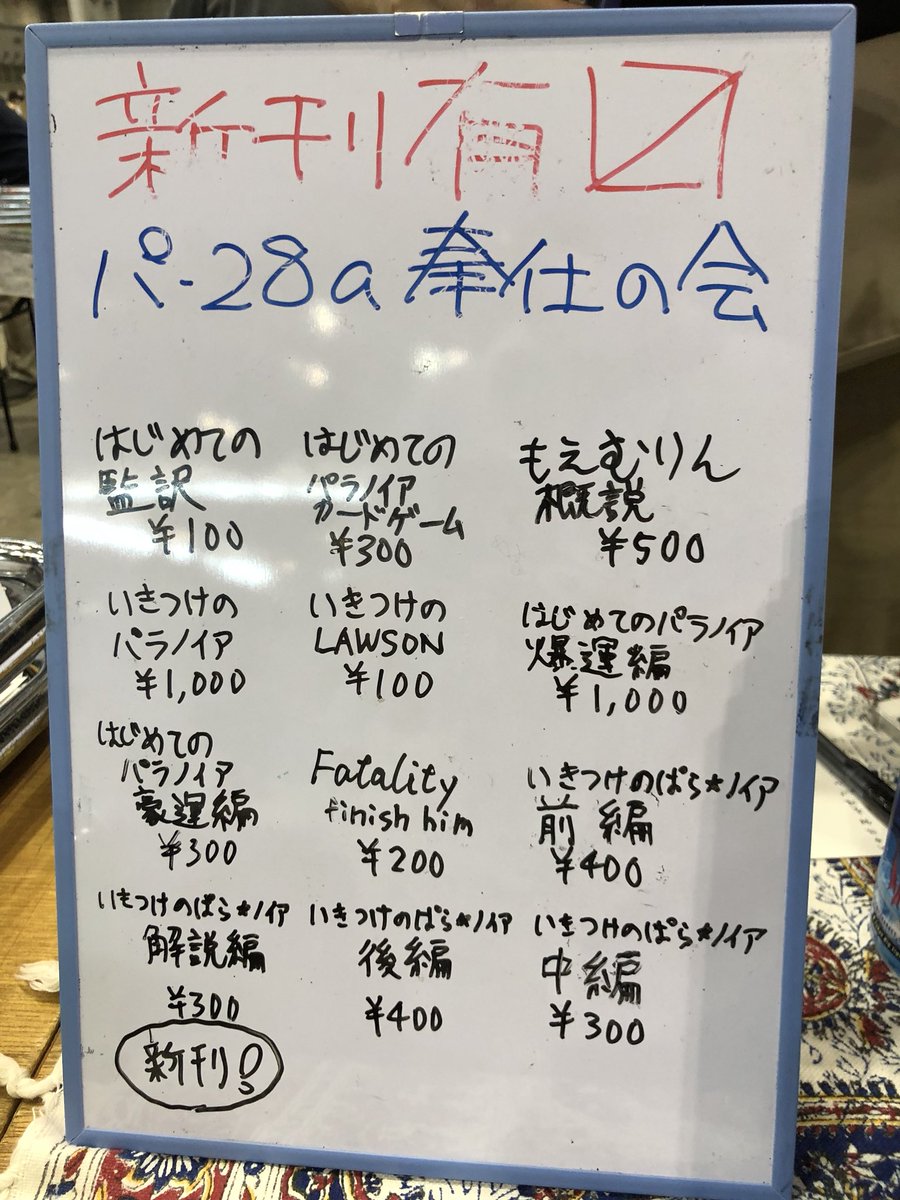 新刊有〼
パ-28a 奉仕の会
はじめての
監訳
¥100
はじめての
パラノイア
カードゲーム
¥300
もえむりん
概説
¥500
いきつけの
パラノイア
¥1,000
いきつけの
LAWSON
¥100
はじめてのパラノイア
爆運編
¥1,000
はじめての
パラノイア
豪運編
¥300
Fatality
finish him
¥200
いきつけのぱら★ノイア
前編
¥400
いきつけのぱら★ノイア
解説編
¥300
新刊!
いきつけのぱら★ノイア
後編
¥400
いきつけのぱら★ノイア
中編
¥300